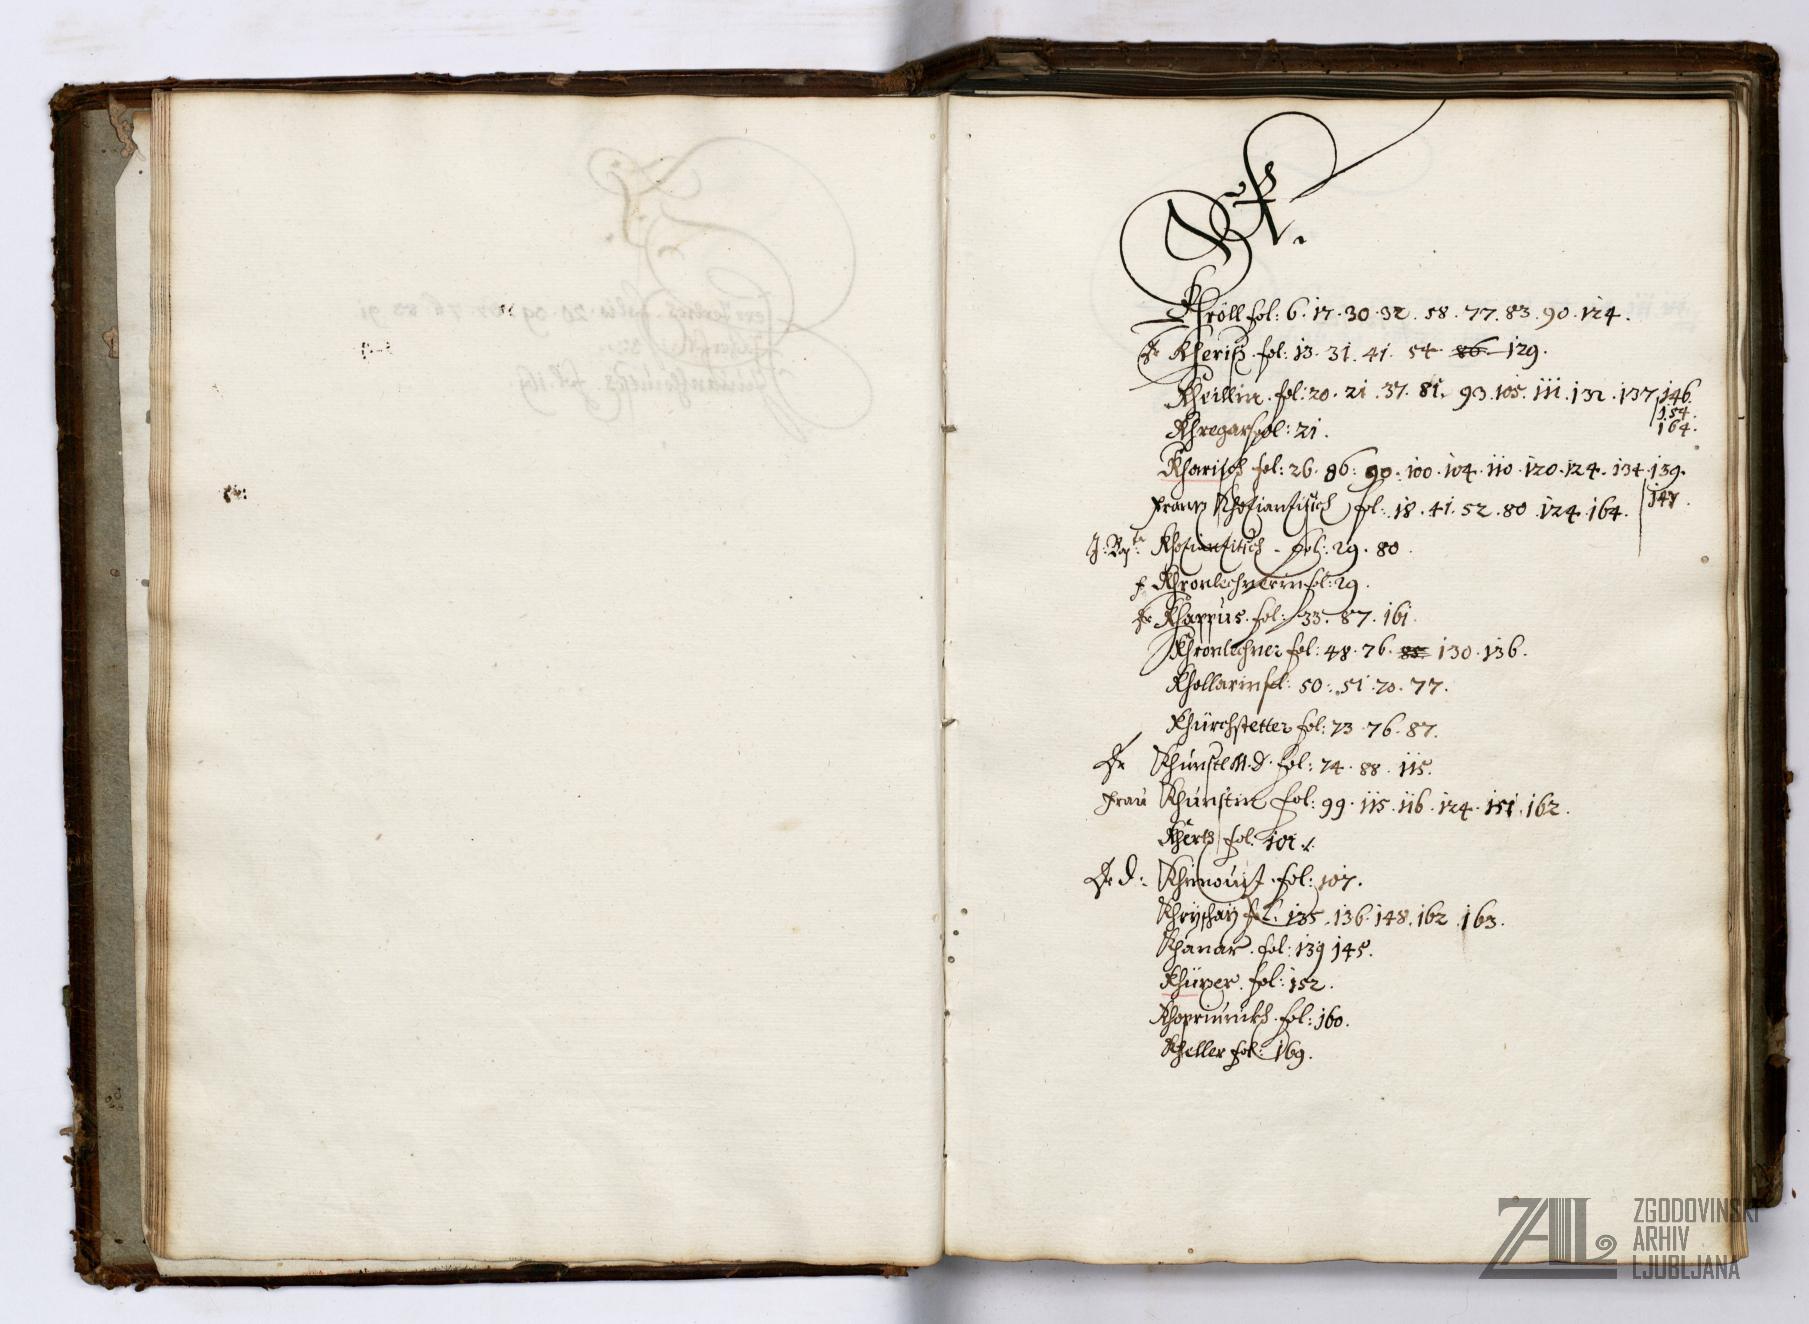 K.
Khröll fol: 6. 17. 30. 32. 58. 77. 83. 90. 124.
Khheriß. fol: 13. 31. 41. 54. 86. 129.
Kheillin. fol: 20. 21. 37. 81. 93. 105. 111. 132. 137. 146.
154.
Khregar fol: 21.
164.
Kharisch fol: 26. 86. 90. 100. 104. 110. 120. 124. 134. 139.
147.
Frantz fol: 18. 41. 52. 80. 124. 164.
J: Bapta: fol: 29. 80.
Khronlechnerin fol: 29.
Khappus. fol: 33. 87. 161.
Khronlechner fol: 48. 76. 85. 130. 136.
Khollarin fol: 50. 51. 70. 77.
Khürchstetter fol: 73. 76. 87.
Khunstl M. D. fol: 74. 88. 115.
Frau Khunstin fol: 99. 115. 116. 124. 151. 162.
Khertz fol. 101.
fol: 107.
fol: 135. 136. 148. 162. 163.
Khanar. fol: 139 145.
fol: 152.
fol: 160.
Kheller fol: 169.
ZAL
ZGODOVINSKI
ARHIV
LJUBLJANA